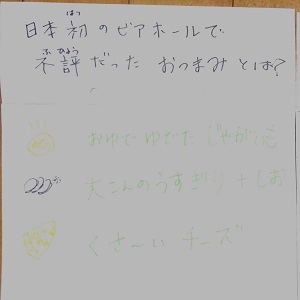 日本初のビアホールで
不評だった おつまみとは?
おゆでゆでたじゃが
大こんのうすぎり + しお
くさ〜い チーズ